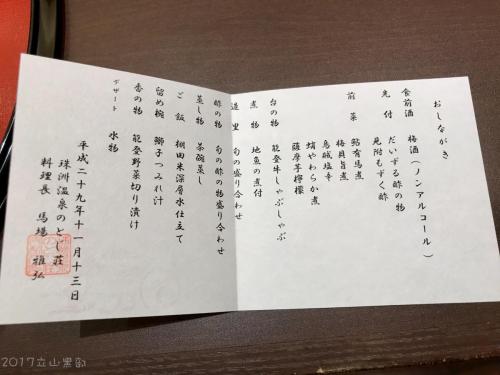 おしながき
食前酒 梅酒(ノンアルコール)
先付 だいずる酢の物
見附もずく酢
前菜 鮎有馬煮
梅貝旨煮
烏賊塩辛
蛸やわらか煮
薩摩芋檸檬
台の物 能登牛しゃぶしゃぶ
煮物 地魚の煮付
造里 旬の盛り合わせ
酢の物 旬の酢の物盛り合わせ
蒸し物 茶碗蒸し
ご飯 棚田米深層水仕立て
留め椀 鰤子つみれ汁
香の物 能登野菜切り漬け
デザート 水物
平成二十九年十一月十三日
珠洲温泉のとじ荘
料理長 馬場 雅弘
2017立山黒部